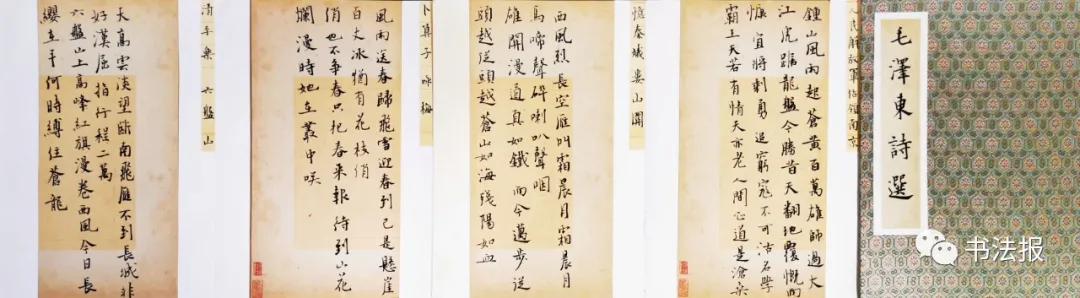 毛澤東詩選
人民解放軍佔領南京
鍾山風雨起蒼黃百萬雄師過大
江虎踞龍盤今勝昔天翻地覆慨而
慷宜將剩勇追窮寇不可沽名學
霸王天若有情天亦老人間正道是滄桑
憶秦娥婁山關
西風烈長空雁叫霜晨月霜晨月
馬啼聲碎喇叭聲咽
雄關漫道真如鐵而今邁步從
頭越從頭越蒼山如海殘陽如血
卜算子詠梅
風雨送春歸飛雪迎春到已是懸崖
百丈冰猶有花枝俏
俏也不爭春只把春來報待到山花
爛漫時她在叢中咲
清平樂 六盤山
天高雲淡望斷南飛雁不到長城非
好漢屈指行程二萬
六盤山上高峰紅旗漫卷西風今日長
纓在手何時縛住蒼龍
书法报